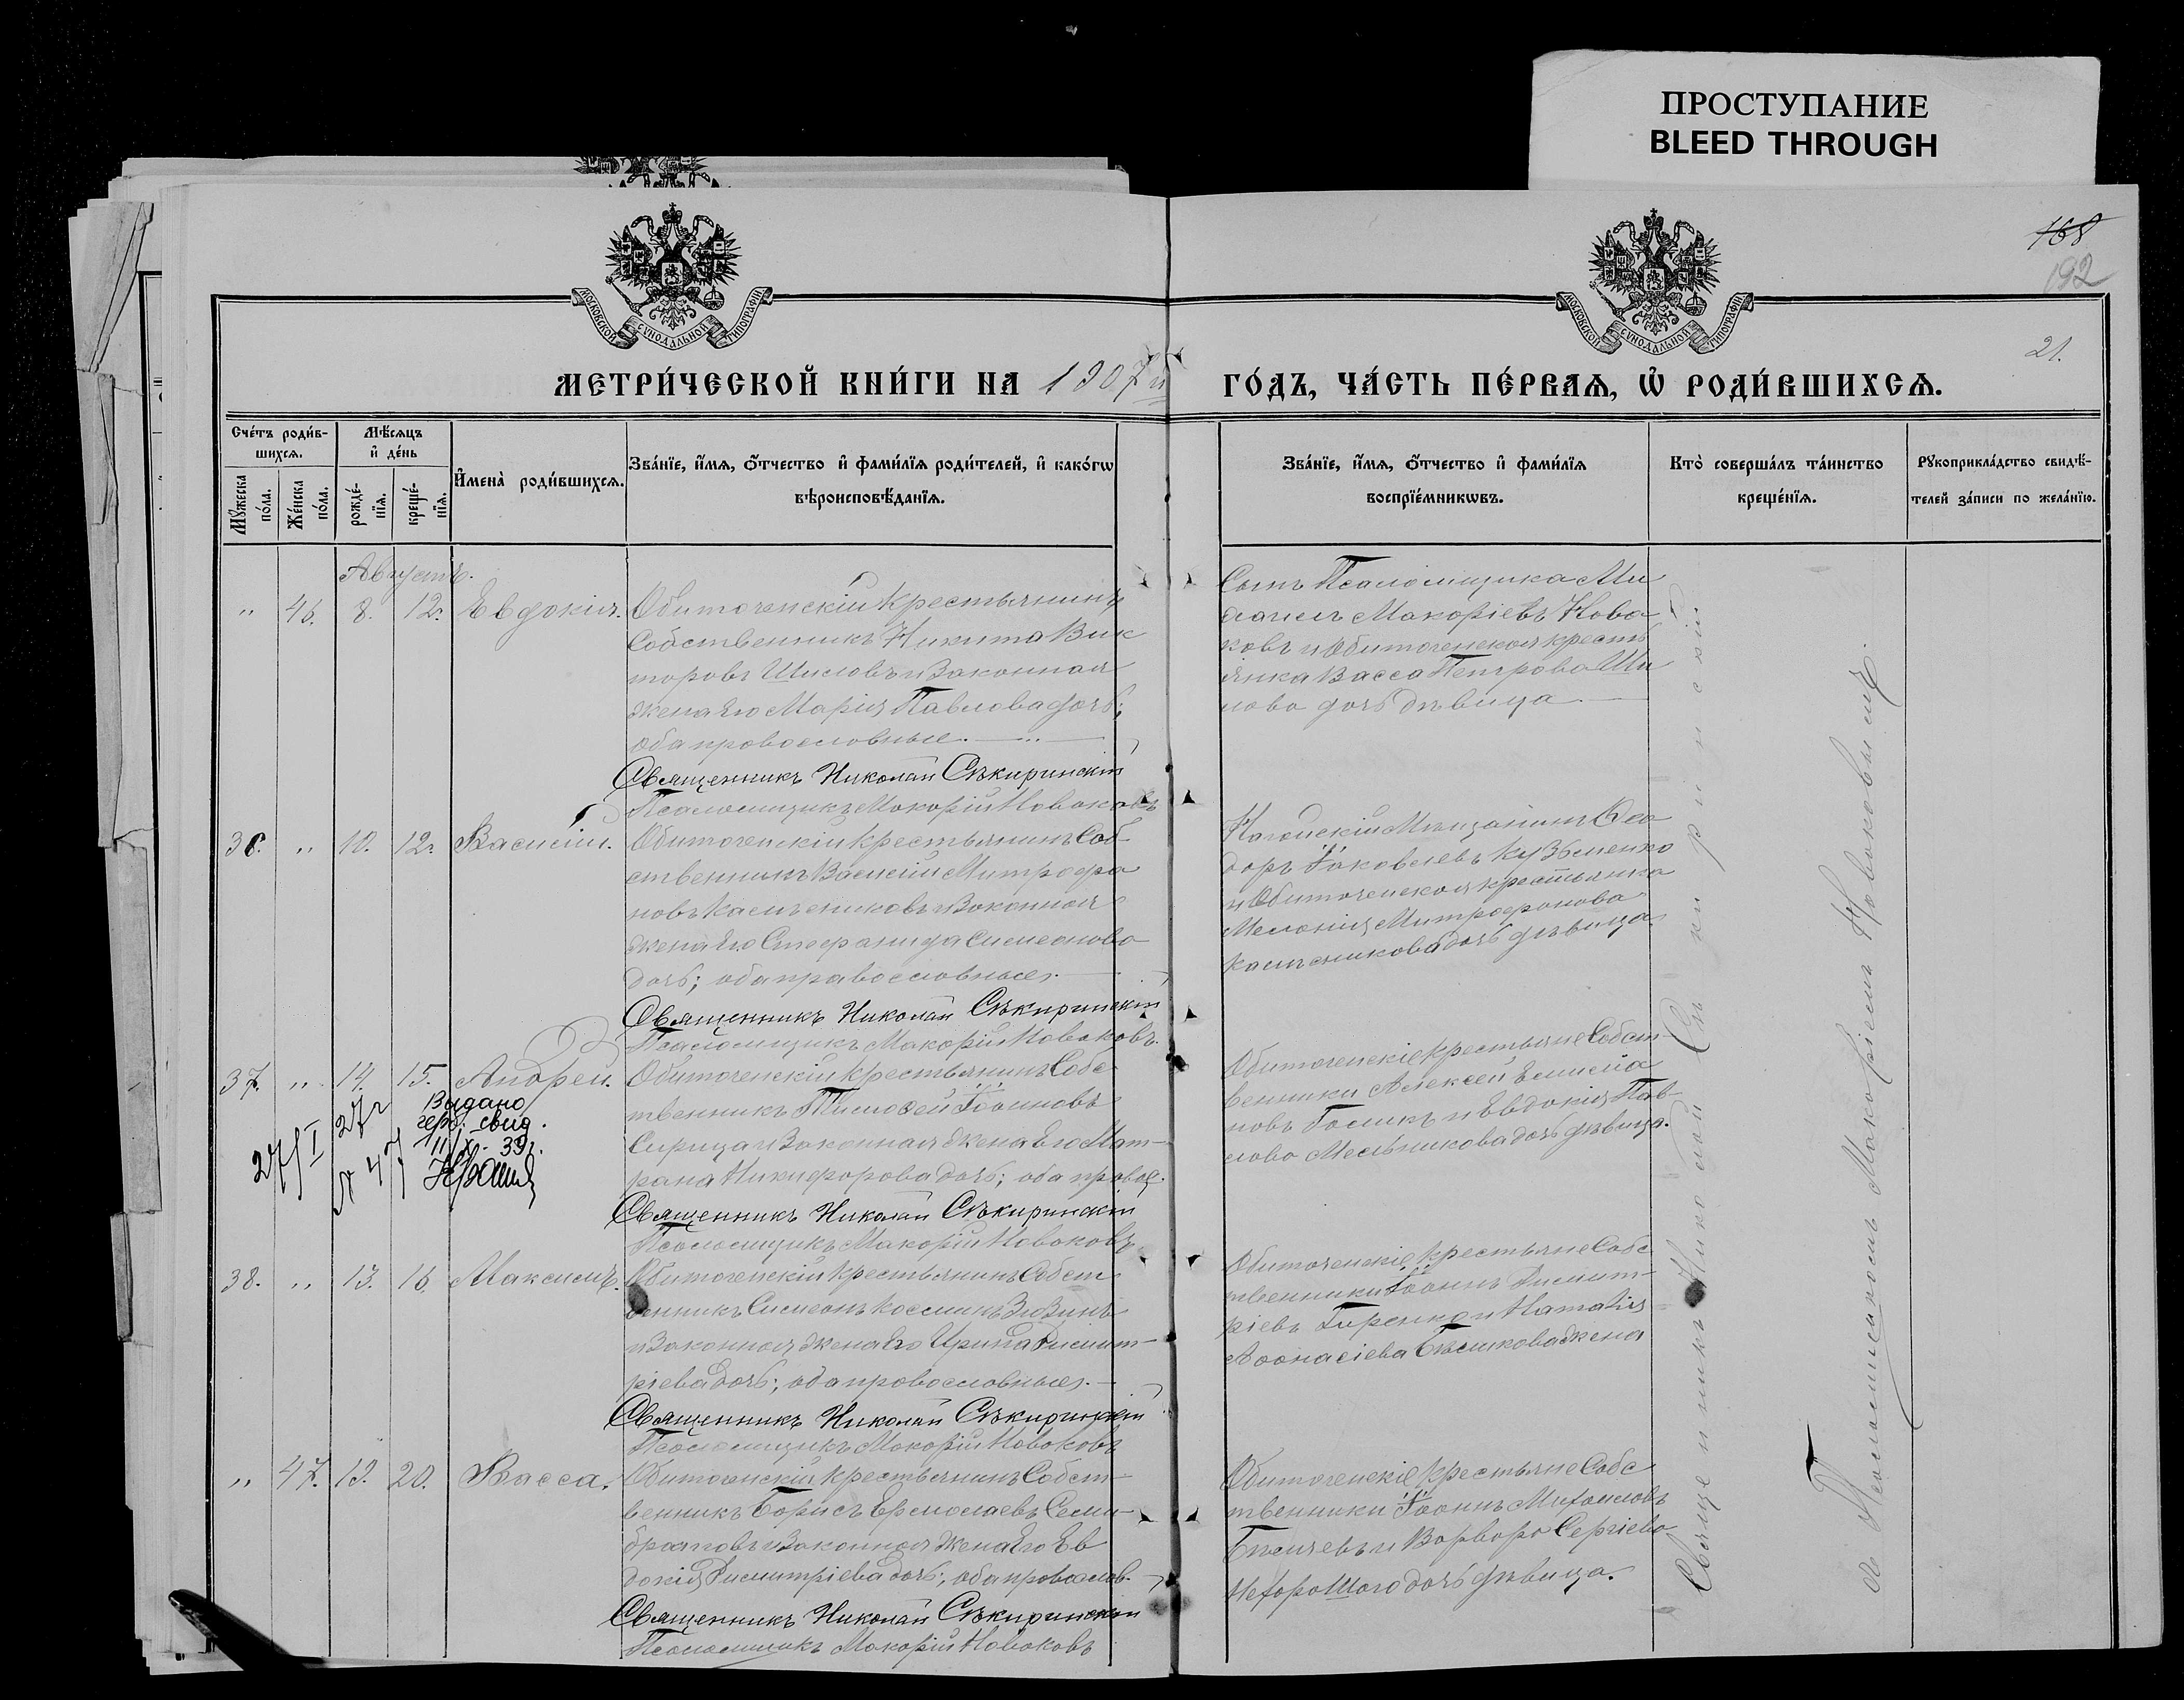 ПРОСТУПАНИЕ
BLEED THROUGH
168
192
21.
МОСКОВСКОЙ СѴНОДАЛЬНОЙ ТИПОГРАФІИ
МОСКОВСКОЙ СѴНОДАЛЬНОЙ ТИПОГРАФІИ
МЕТРИ́ЧЕСКОЙ КНИ́ГИ НА 1907 й ГО́ДЪ, ЧА́СТЬ ПЕ́РВАЯ, Ѽ РОДИ́ВШИХСЯ.
Сче́тъ роди́в-
шихся.
Мѣ́сяцъ
и де́нь
Мꙋжеска по́ла.
Же́нска по́ла.
рожде́-
нїя.
креще́-
нїя.
И҆мена̀ роди́вшихся.
Зва́нїе, и҆́мя, ѻ҆́тчество и҆ фами́лїя роди́телей, и҆ како́гѡ
вѣроисповѣ́данїя.
Зва́нїе, и҆́мя, ѻ҆́тчество и҆ фами́лїя
воспрїе́мникѡвъ.
Кто̀ соверша́лъ та́инство
креще́нїя.
Рꙋкоприкла́дство свидѣ́-
телей за́писи по жела́нїю.
Августъ.
" 46. 8. 12. Евдокія.
Обиточенскій крестьянинъ
собственникъ Никита Вик
торовъ Шиловъ и законная
жена его Марія Павлова дочь;
оба православные.
Священникъ Николай Сѣкиринскій
Псаломщикъ Макорій Новаковъ
Сынъ Псаломщика Ми
хаилъ Макоріевъ Нова
ковъ и Обиточенская кресть
янка Васса Петрова Ши
лова дочь дѣвица
36. " 10. 12. Василій.
Обиточенскій крестьянинъ соб
ственникъ Василій Митрофа
новъ Калѣсниковъ и законная
жена его Стефанида Симеонова
дочь; оба православные.
Священникъ Николай Сѣкиринскій
Псаломщикъ Макорій Новаковъ.
Ногайскій мѣщанинъ Ѳео
доръ Іаковлевъ Кузьменко
и Обиточенская крестьянка
Меланія Митрофанова
Калѣсникова дочь дѣвица
37. " 14. 15. Андрей.
Выдано
герб. свид.
11/X - 39г.
27/I 27г
№ 47
Обиточенскій крестьянинъ собс
твенникъ Тимоѳей Іоанновъ
Сирица и законная жена его Мат-
рона Никифорова дочь; оба правос.
Священникъ Николай Сѣкиринскій
Псаломщикъ Макорій Новаковъ
Обиточенскіе крестьяне собст-
венники Алексей Елисѣа
новъ и Евдокія Пав-
лова Мельникова дочь дѣвица.
38. " 13. 16. Максимъ.
Обиточенскій крестьянинъ собст
венникъ Симеонъ Косминъ Зюзинъ
и законная жена его Ирина Димит-
ріева дочь; оба православные.
Священникъ Николай Сѣкиринскій
Псаломщикъ Макорій Новаковъ
Обиточенскіе крестьяне собс
твенники Іоаннъ Димит-
ріевъ Гиренко и Наталія
Аѳонасіева жена
" 47. 19. 20. Васса.
Обиточенскій крестьянинъ собст-
венникъ Борисъ Ермолаевъ Семи-
братовъ и законная жена его Ев
докія Димитріева дочь; оба правослов.
Священникъ Николай Сѣкиринскій
Псаломщикъ Макорій Новаковъ
Обиточенскіе крестьяне собс
твенники Іоаннъ Михаиловъ
и Варвара Сергіева
Нехорошаго дочь дѣвица.
Священникъ Николай Сѣкиринскій
съ Псаломщикомъ Макоріемъ Новаковымъ.